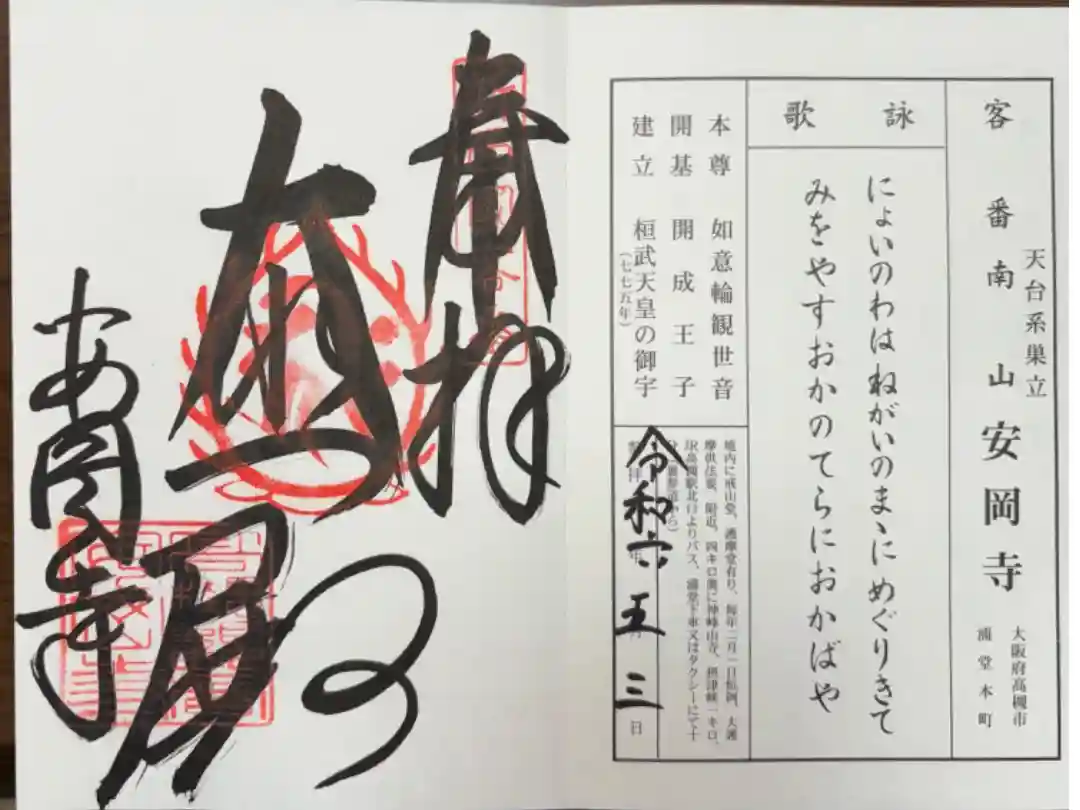 客番 南山 安岡寺
天台系巣立
大阪府高槻市
浦堂本町
詠歌
にょいのわはねがいのまゝにめぐりきて
みをやすおかのてらにおかばや
本尊 如意輪観世音
開基 開成王子
建立 桓武天皇の御宇
(七七五年)
境内に戒山堂、護摩堂有り、毎年二月一日恒例、大護
摩供法要、附近、四キロ圏に神峰山寺、摂津峡一キロ、
JR高槻駅北口よりバス、浦堂下車又はタクシーにて十
令和六年五月三日
奉拝
安岡寺